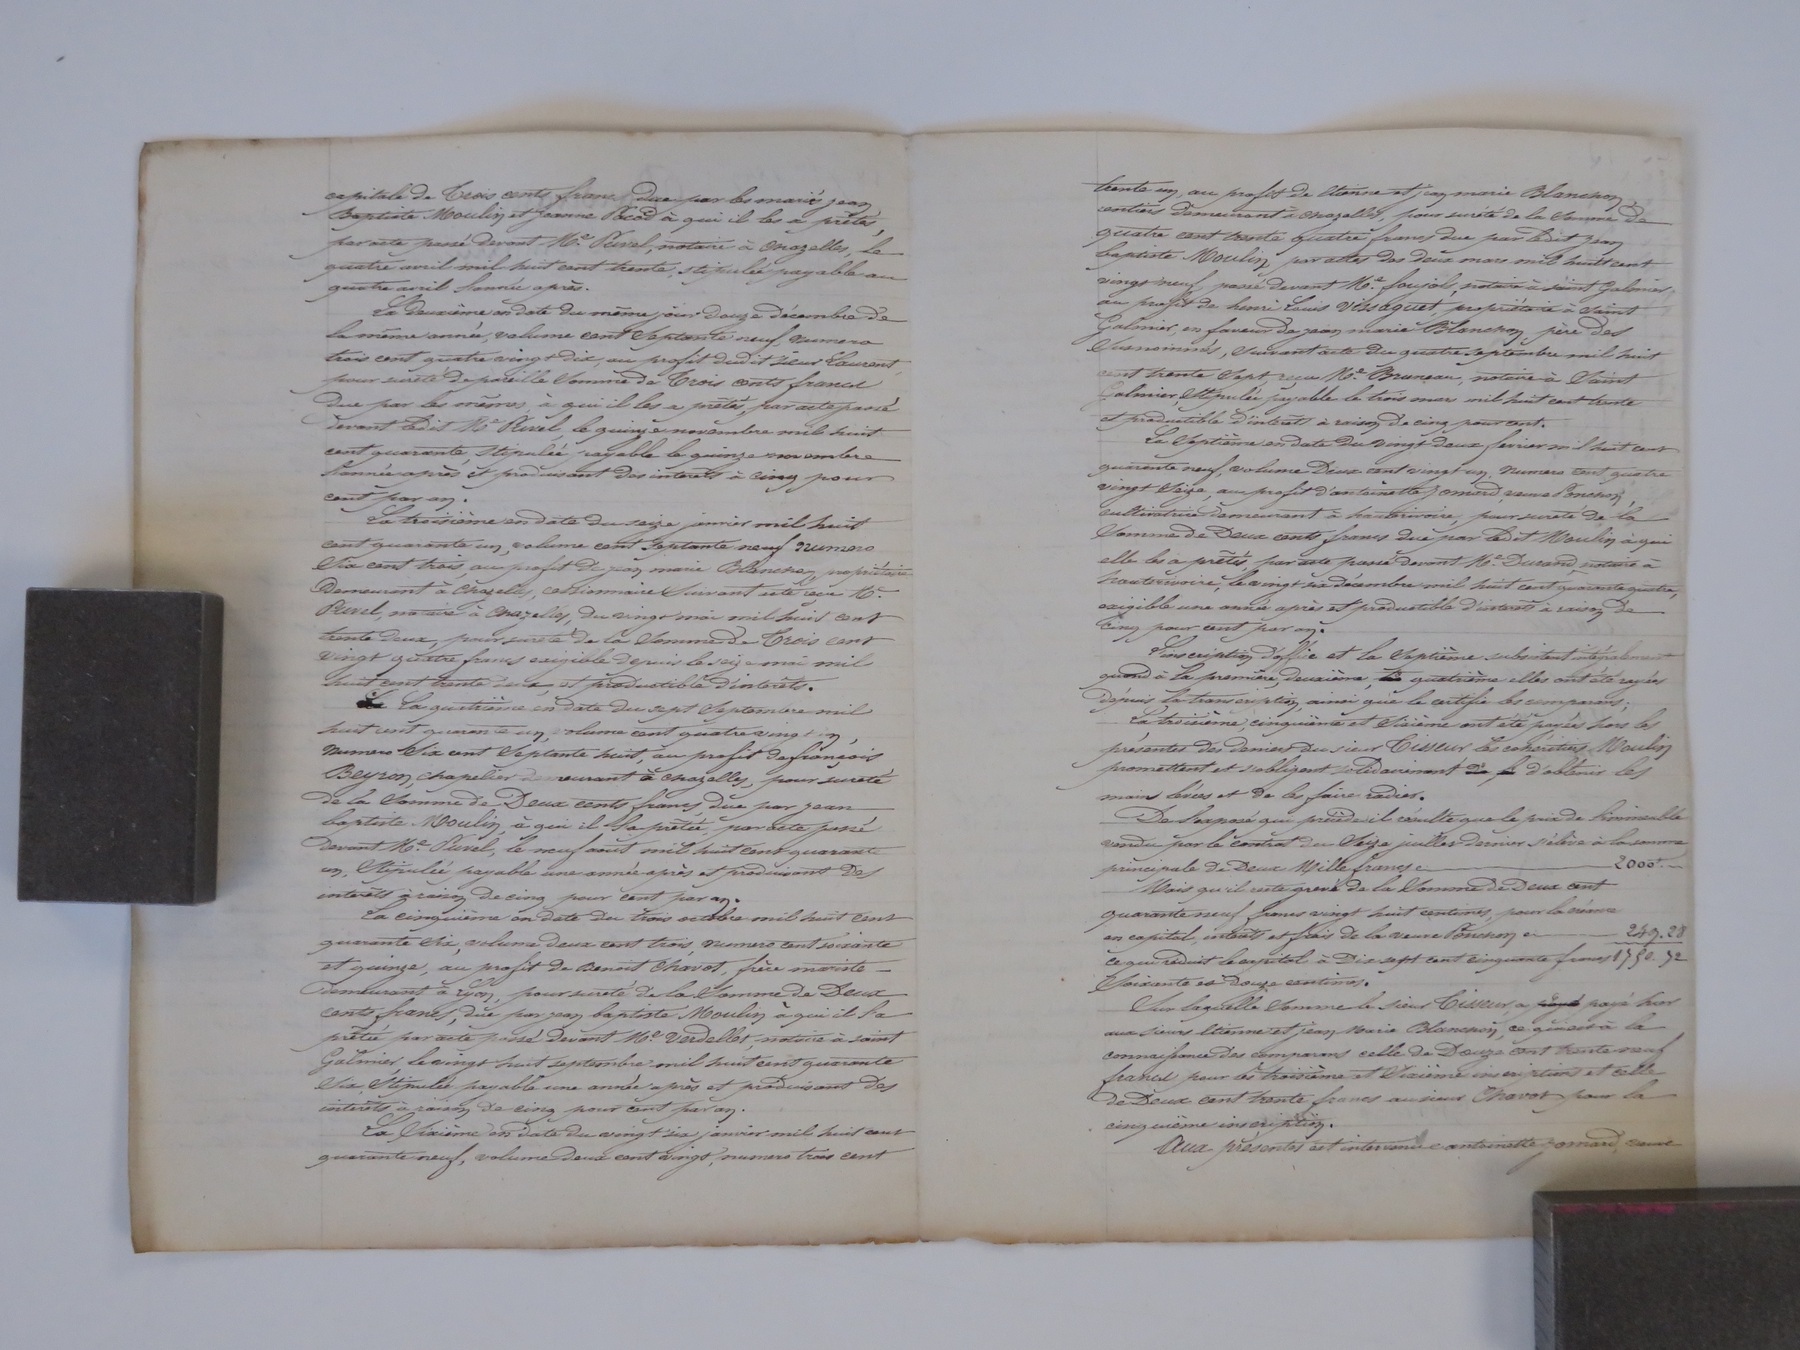 capitale de Trois cents francs due par les mariés jean
Baptiste Moulin et jeanne Picod à qui il les a prêtés,
par acte passé devant Me Puvel, notaire à Chazelles, le
quatre avril mil huit cent trente, stipulée payable au
quatre avril l'année après.
La deuxième en date du même jour douze décembre de
la même année, volume cent septante neuf, numero
trois cent quatre vingt dix, au profit dudit sieur Laurent,
pour sureté de pareille somme de Trois cents francs
due par les mêmes à qui il les a prêtés, par acte passé
devant ledit Me Puvel le quinze novembre mil huit
cent quarante, stipulée payable le quinze novembre
l'année après et produisant des interets à cinq pour
cent par an.
La troisième en date du seize janvier mil huit
cent quarante un, volume cent septante neuf numero
six cent trois, au profit de jean marie Blanchon, propriétaire
demeurant à Chazelles, cessionnaire suivant acte reçu Me
Puvel, notaire à Chazelles, du vingt mai mil huit cent
trente deux, pour sureté de la somme de Trois cent
vingt quatre francs exigible depuis le seize mai mil
huit cent trente et productible d'intérêts.
La quatrième en date du sept septembre mil
huit cent quarante un, volume cent quatre vingt un,
numero six cent septante huit, au profit de françois
Beyron, chapelier demeurant à Chazelles, pour sureté
de la somme de Deux cents francs, due par jean
baptiste Moulin, à qui il l'a prêtée, par acte passé
devant Me Puvel, le neuf août mil huit cent quarante
un, stipulée payable une année après et produisant des
intérêts à raison de cinq pour cent par an.
La cinquième en date du trois octobre mil huit cent
quarante six, volume deux cent trois, numero cent soixante
et quinze, au profit de Benoit Chavot, frère mariste
demeurant à Lyon, pour sureté de la somme de Deux
cents francs, due par jean baptiste Moulin à qui il l'a
prêtée par acte passé devant Me Verdellet, notaire à saint
Galmier le vingt huit septembre mil huit cent quarante
six, stipulée payable une année après et produisant des
intérêts à raison de cinq pour cent par an.
La sixième en date du vingt six janvier mil huit cent
quarante neuf, volume deux cent vingt, numero trois cent
trente un, au profit de Etienne et jean marie Blanchon,
rentiers demeurant à Chazelles, pour sureté de la somme de
quatre cent trente quatre francs due par ledit jean
baptiste Moulin, par actes des deux mars mil huit cent
vingt neuf, passé devant Me Soujol, notaire à saint Galmier,
au profit de henri Louis Vissaguet, propriétaire à saint
Galmier, en faveur de jean marie Blanchon, père des
susnommés, suivant acte du quatre septembre mil huit
cent trente sept, reçu Me Bruneau, notaire à Saint
Galmier, stipulée payable le trois mars mil huit cent trente
et productible d'intérêts à raison de cinq pour cent.
La septième en date du vingt deux fevrier mil huit cent
quarante neuf, volume Deux cent vingt un, numero cent quatre
vingt seize, au profit d'antoinette jomard, veuve Ponchon,
cultivatrice demeurant à hauterivoire, pour sureté de la
somme de Deux cents francs due par ledit Moulin à qui
elle les a prêtés, par acte passé devant Me Durand, notaire à
hauterivoire, le vingt six décembre mil huit cent quarante quatre,
exigible une année après et productible d'interets à raison de
cinq pour cent par an.
L'inscription d'office et la septième subsistent intégralement
quand à la première, deuxième, et quatrième elles ont été rayées
depuis la transcription, ainsi que le certifie les comparans;
La troisième, cinquième et sixième ont été payées hors les
présentes des deniers du sieur Tisseur les cohéritiers Moulin
promettent et s'obligent solidairement d'obtenir les
mains levées et de les faire radier.
De l'exposé qui précède il résulte que le prix de l'immeuble
vendu par le contrat du seize juillet dernier s'élève à la somme
principale de Deux Mille francs ci 2000f
Mais qu'il reste grevé de la somme de Deux cent
quarante neuf francs vingt huit centimes, pour la créance
en capital, intérêts et frais de la veuve Ponchon ci 249.28
ce qui réduit le capital à Dix sept cent cinquante francs 1750.72
soixante et douze centimes.
Sur laquelle somme le sieur Tisseur, a payé hier
aux sieurs Etienne et jean Marie Blanchon, ce qui est à la
connaissance des comparans celle de Douze cent trente neuf
francs pour les troisième et sixième inscriptions et celle
de Deux cent trente francs au sieur Chavot pour la
cinquième inscription.
Aux présentes est intervenue antoinette jomard, veuve